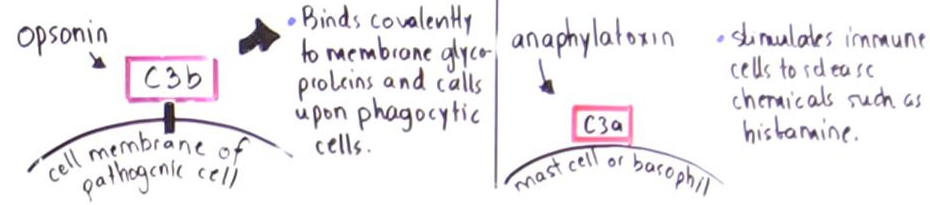 opsonin
C3b
cell membrane of
pathogenic cell
• Binds covalently
to membrane glyco-
proteins and calls
upon phagocytic
cells.
anaphylatoxin
C3a
mast cell or basophil
• stimulates immune
cells to release
chemicals such as
histamine.